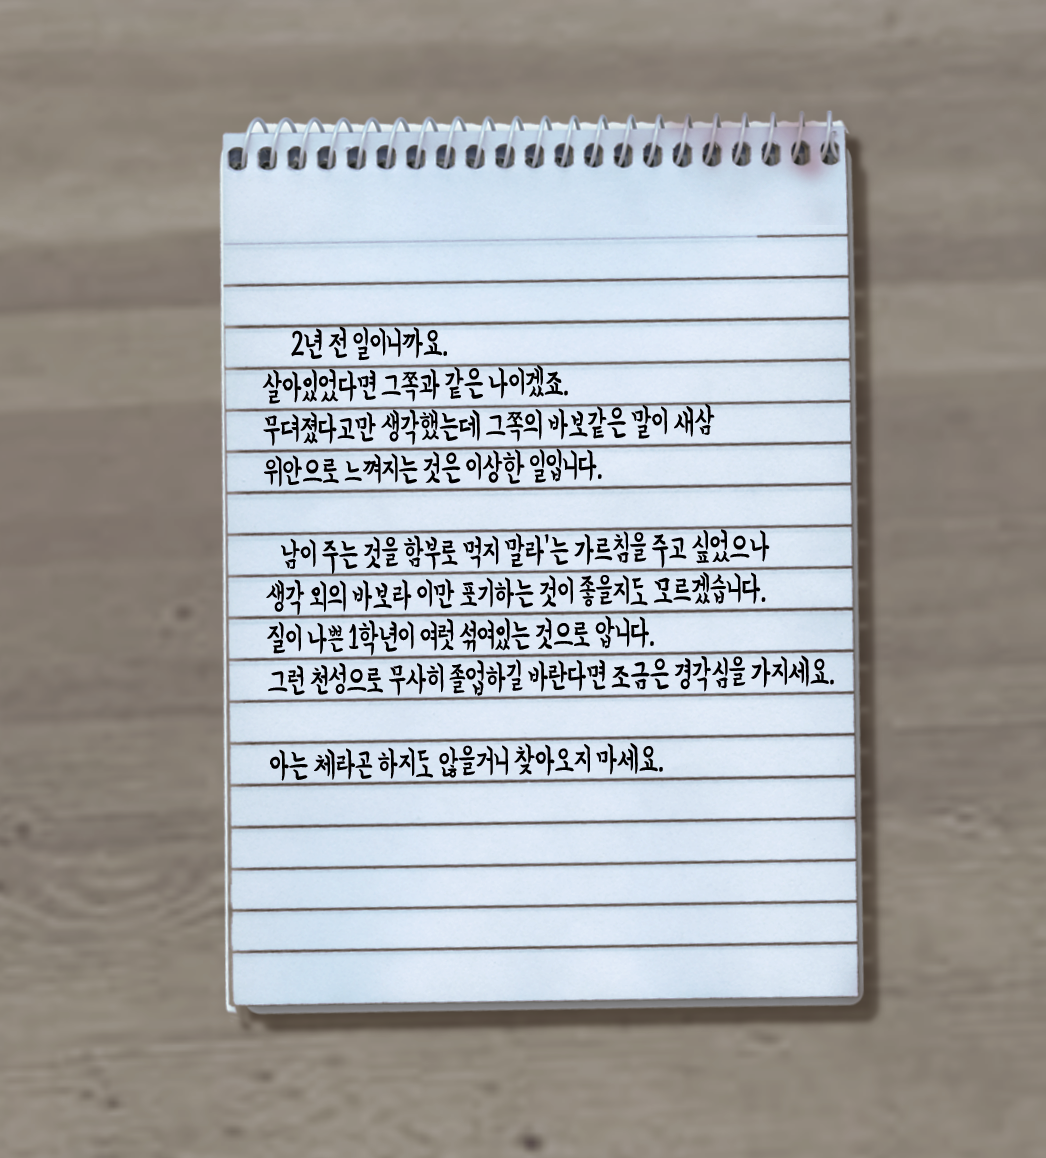 2년 전 일이니까요.
살아있었다면 그쪽과 같은 나이겠죠.
무뎌졌다고만 생각했는데 그쪽의 바보같은 말이 새삼
위안으로 느껴지는 것은 이상한 일입니다.
남이 주는 것을 함부로 먹지 말라'는 가르침을 주고 싶었으나
생각 외의 바보라 이만 포기하는 것이 좋을지도 모르겠습니다.
질이 나쁜 1학년이 여럿 섞여있는 것으로 압니다.
그런 천성으로 무사히 졸업하길 바란다면 조금은 경각심을 가지세요.
아는 체라곤 하지도 않을거니 찾아오지 마세요.